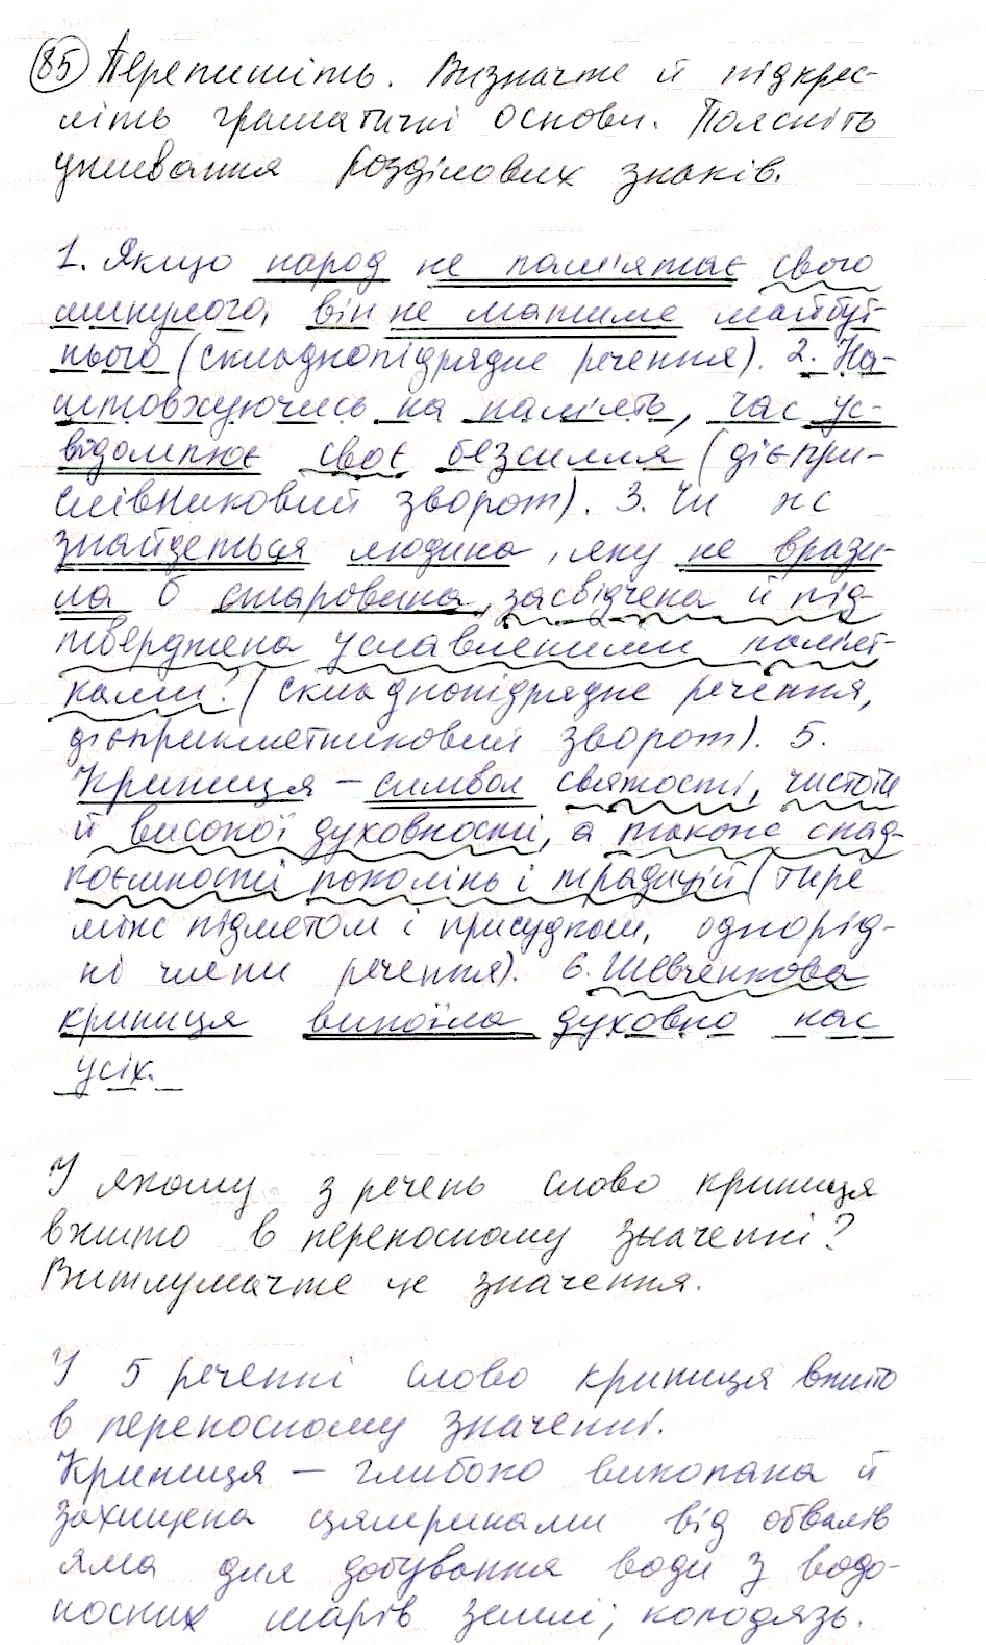 85 Перепишіть. Визначте й підкрес-
літь граматичні основи. Поясніть
уживання розділових знаків.
1. Якщо народ не пам'ятає свого
минулого, він не матиме майбут-
нього (складнопідрядне речення). 2. На-
штовхуючись на пам'ять, час ус-
відомлює своє безсилля (дієпри-
слівниковий зворот). 3. Чи не
знайдеться людина, яку не врази-
ла б старовина, засвідчена й під-
тверджена уславленими пам'ят-
ками? (складнопідрядне речення,
дієприкметниковий зворот). 5.
Криниця – символ святості, чистоти
й високої духовності, а також спад-
коємності поколінь і традицій (тире
між підметом і присудком, однорід-
ні члени речення). 6. Шевченкова
криниця випоїла духовно нас
усіх.
У якому з речень слово криниця
вжито в переносному значенні?
Витлумачте це значення.
У 5 реченні слово криниця вжито
в переносному значенні.
Криниця – глибоко викопана й
захищена цямринами від обвалів
яма для добування води з водо-
носних шарів землі; колодязь.